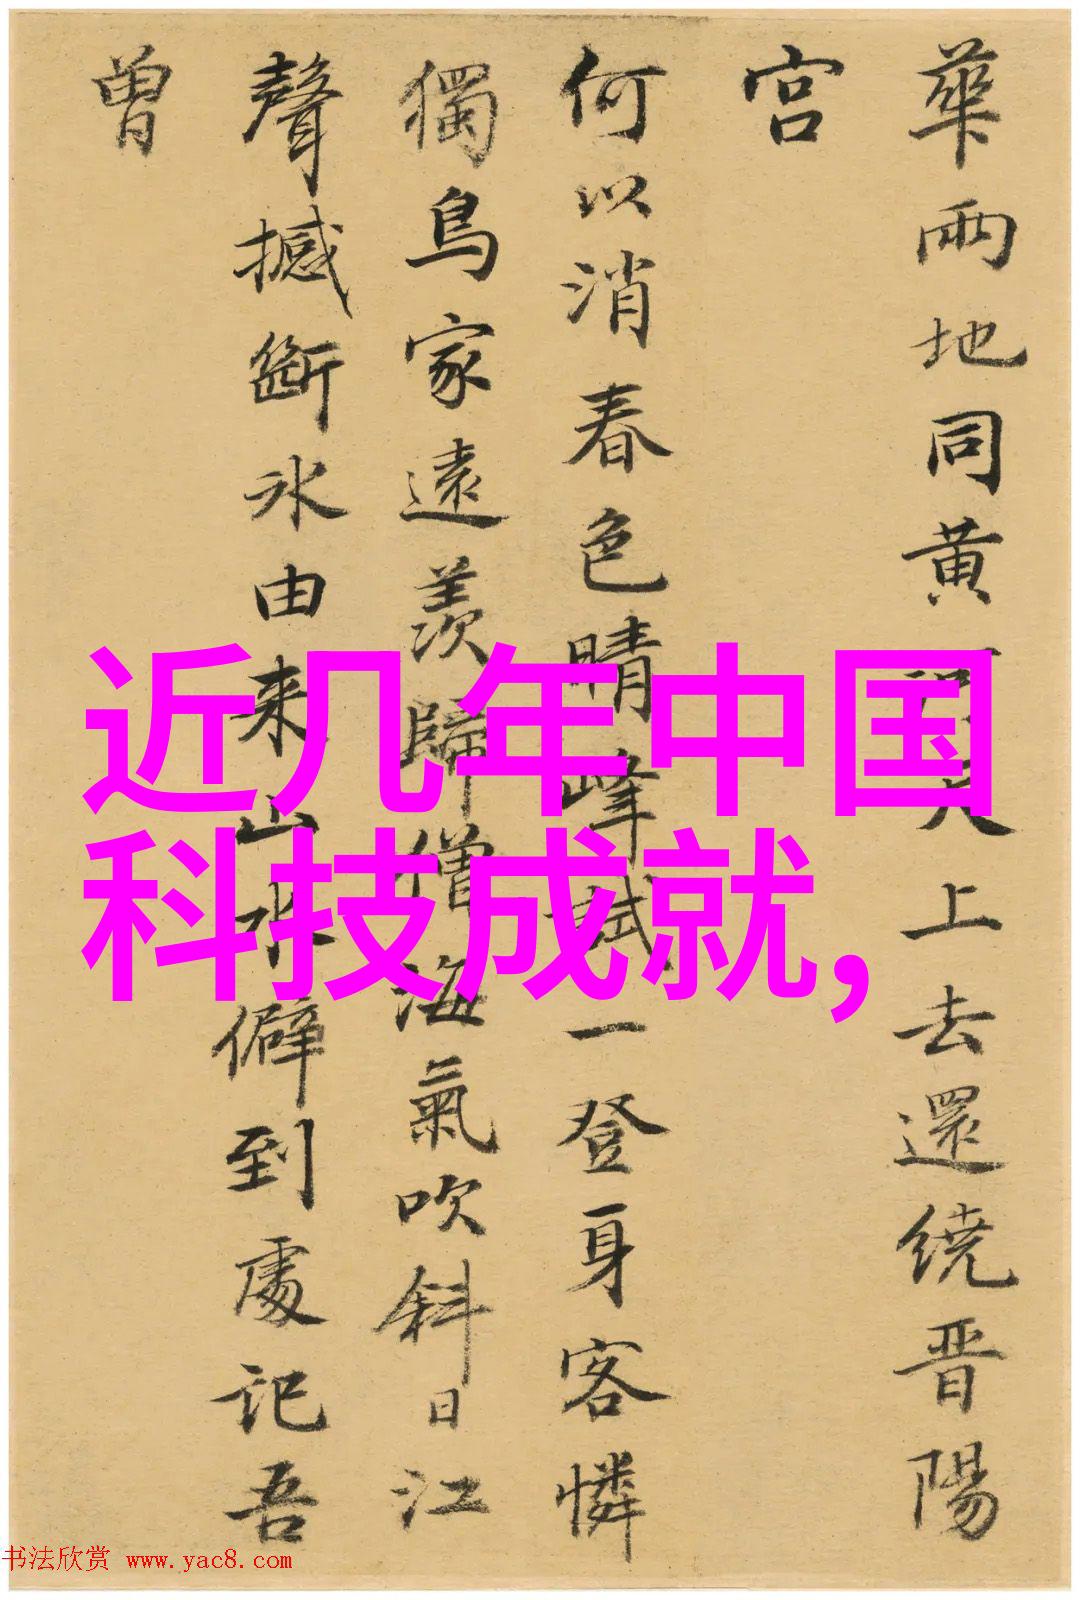 華兩地同黃 天上去還繞晋陽
宫
何以消春色晴峰試一登身客憐
獨鳥家遠羨歸僧海氣吹斜日江
聲撼斷冰由来山水僻到處記吾
曾
近几年中国
科技成就,
书法欣赏 www.yac8.com